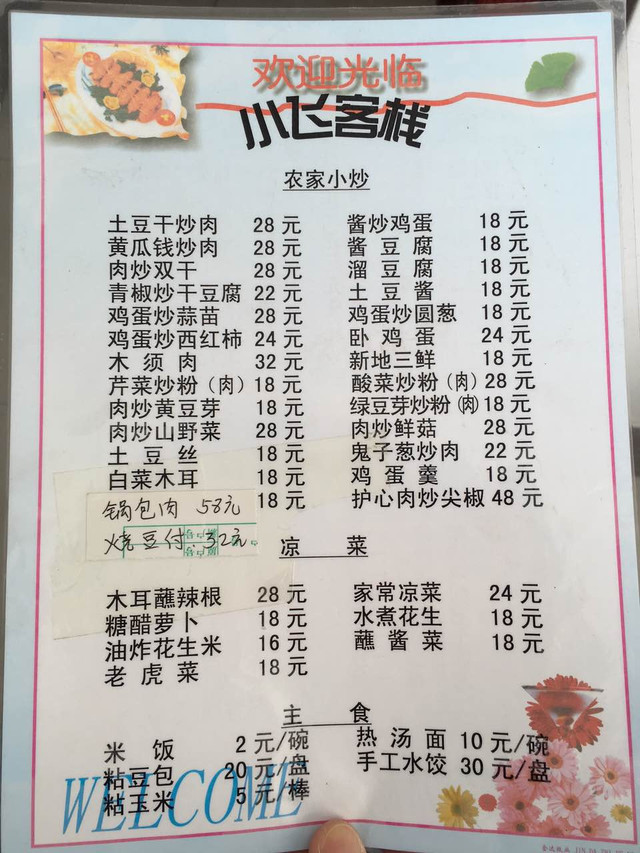 欢迎光临
小飞客栈
农家小炒
土豆干炒肉 28 元
黄瓜钱炒肉 28 元
肉炒双干 28 元
青椒炒干豆腐 22 元
鸡蛋炒蒜苗 28 元
鸡蛋炒西红柿 24 元
木须肉 32 元
芹菜炒粉（肉）18 元
肉炒黄豆芽 18 元
肉炒山野菜 28 元
土豆丝 18 元
白菜木耳 18 元
18 元
锅包肉 58元
烧豆付 32元
酱炒鸡蛋 18 元
酱豆腐 18 元
溜豆腐 18 元
土豆酱 18 元
鸡蛋炒圆葱 18 元
卧鸡蛋 24 元
新地三鲜 18 元
酸菜炒粉（肉）28 元
绿豆芽炒粉(肉)18 元
肉炒鲜菇 28 元
鬼子葱炒肉 22 元
鸡蛋羹 18 元
护心肉炒尖椒 48 元
凉菜
木耳蘸辣根 28 元
糖醋萝卜 18 元
油炸花生米 16 元
老虎菜 18 元
家常凉菜 24 元
水煮花生 18 元
蘸酱菜 18 元
主食
米饭 2 元/碗
粘豆包 20元/盘
粘玉米 5元/棒
热汤面 10元/碗
手工水饺 30元/盘
WELCOME